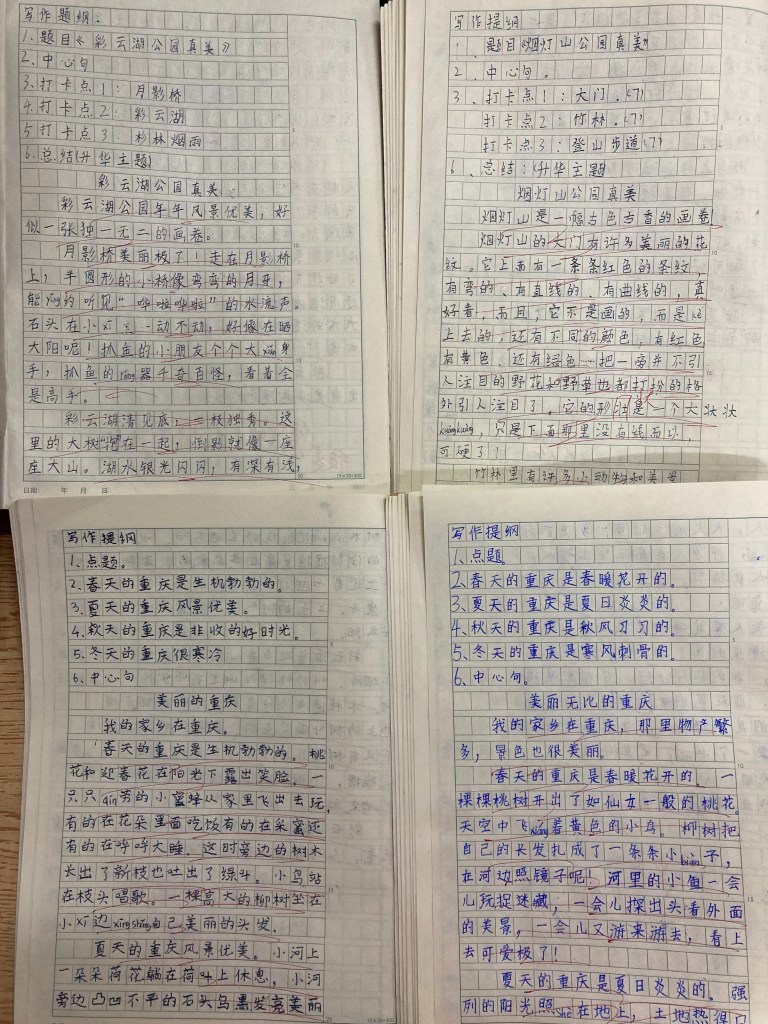 写作题纲:
1.题目《彩云湖公园真美》
2.中心句
3.打卡点1:月影桥
4.打卡点2:彩云湖
5打卡点3.杉林烟雨
6.总结(升华主题)
彩云湖公园真美
彩云湖公园年年风景优美,好
似一张独一无二的画卷。
月影桥美丽极了!走在月影桥
上,半圆形的小桥像弯弯的月牙,
能yǐn约听见“哗啦哗啦”的水流声。
石头在小xī一动不动,好像在晒
太阳呢!抓鱼的小朋友个个大xiǎn身
手,抓鱼的gōng器千奇百怪,看着全
是高手。
彩云湖清见底,一极独秀。这
里的大树在一起,倒影就像一座
座大山。湖水银光闪闪,有深有浅,
日期: 年 月 日
写作提纲
1、题目《烟灯山公园真美》
2、中心句。
3、打卡点1:大门.(7)
打卡点2:竹林.(7)
打卡点3:登山步道(7)
6、总结:(升华主题
烟灯山公园真美
烟灯山是一幅古色古香的画卷
烟灯山的大门有许多美丽的花
纹。它上面有一条条红色的条纹,
有弯的、有直线的、有曲线的,真
好看,而且,它不是画的,而是
上去的,还有不同的颜色,有红色
有黄色,还有绿色……把一旁并不引
人注目的野花和野草也都打扮的格
外引人注目了。它的形壮是一个大壮壮
kuāngkuāng,只是下面那里没有线而以,
可硬了!
竹林里有许多小动物和美景
写作提纲
1、点题。
2、春天的重庆是生机勃勃的。
3、夏天的重庆风景优美。
4、秋天的重庆是非收的好时光。
5、冬天的重庆很寒冷
6、中心句
美丽的重庆
我的家乡在重庆。
春天的重庆是生机勃勃的。桃
花和迎春花在阳光下露出笑脸。一
只只qín劳的小蜜蜂从家里飞出去玩,
有的在花朵里面吃饭有的在采蜜还
有的在呼呼大睡。这时旁边的树木
长出了新枝也吐出了绿斗。小鸟站
在枝头唱歌。一棵高大的柳树坐在
小xī边xīngshǎng自己美丽的头发。
夏天的重庆风景优美。小河上
一朵朵荷花躺在荷叶上休息,小河
旁边凸凹不平的石头乌黑发亮美丽
写作提纲
1、点题。
2、春天的重庆是春暖花开的。
3、夏天的重庆是夏日炎炎的。
4、秋天的重庆是秋风刀刀的。
5、冬天的重庆是寒风刺骨的。
6、中心句。
美丽无比的重庆
我的家乡在重庆,那里物产繁
多,景色也很美丽。
春天的重庆是春暖花开的。一
棵棵桃树开出了如仙女一般的桃花。
天空中飞xiáng着黄色的小鸟。柳树把
自己的长发扎成了一条条小biàn子,
在河边照镜子呢!河里的小鱼一会
儿玩捉迷藏,一会儿探出头看外面
的美景,一会儿又游来游去,看上
去可爱极了!
夏天的重庆是夏日炎炎的。强
列的阳光照shè在地上,土地热得口